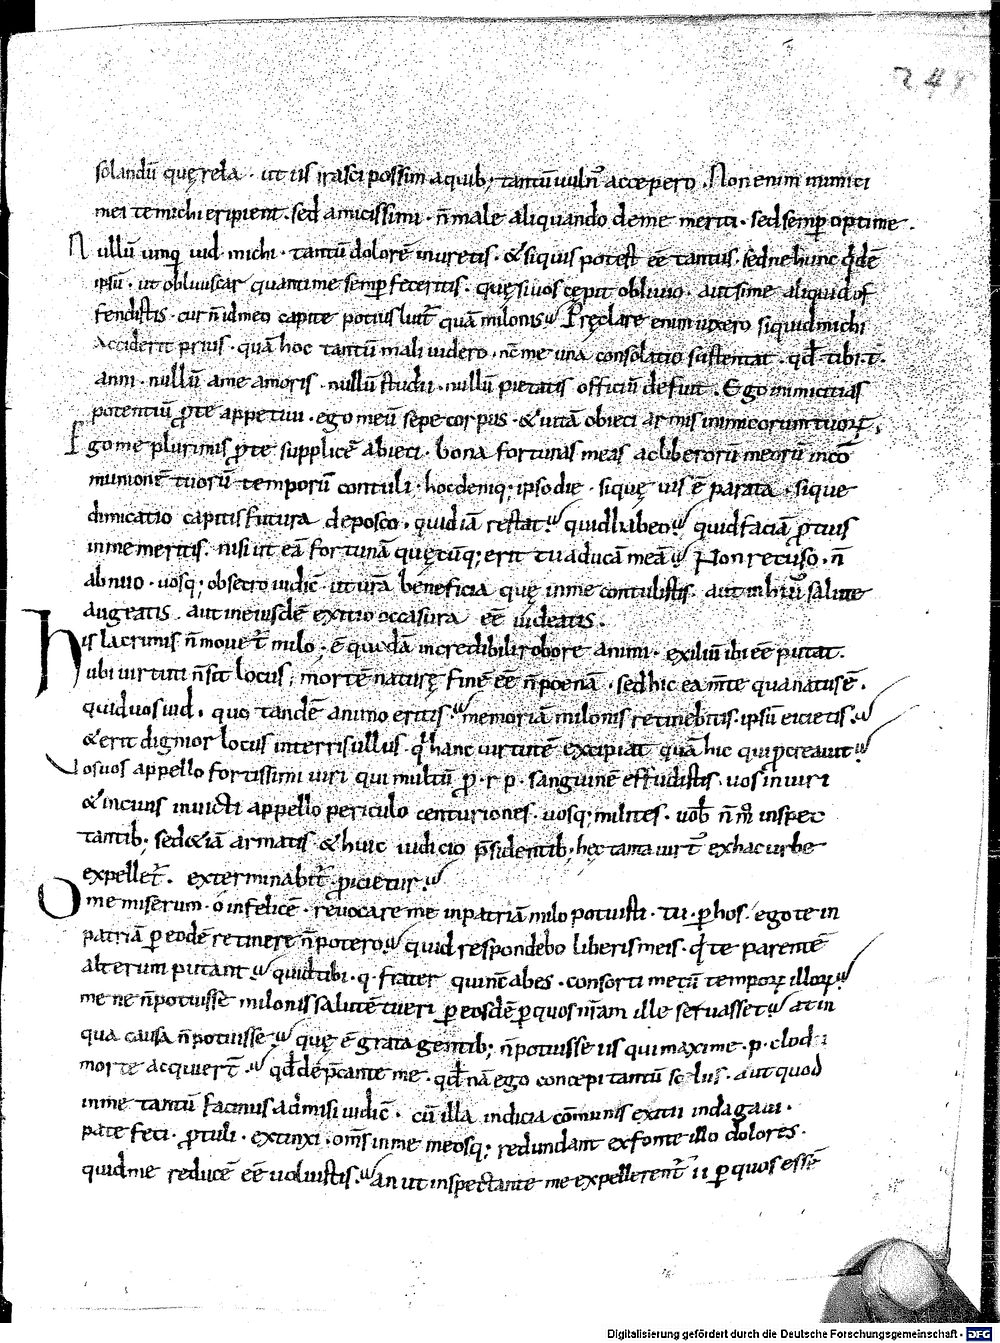 248
solandū quęrela · ut iis irasci possim a quib; tantū uuln᷒ accepero . Non enim inimici
mei te michi eripient . sed amicissimi · n̄ male aliquando de me meriti · sed semꝑ optime .
Nullū umq̄ iud · michi · tantū dolorē inuretis · & si quis potest eē tantus · sed ne hunc q̄dē
ipsū · ut obliuiscar quanti me semꝑ feceritis · quę si uos cępit obliuio · aut si me aliquid of
fendistis · cur n̄ id meo capite potius luit̄ quā milonis Pręclare enim uixero si quid michi
acciderit prius · quā hoc tantū mali uidero · nc̄ me una consolatio sustentat · qd̄ tibi · t̄ ·
anni · nullū a me amoris · nullū studii · nullū pietatis officiū defuit . Ego inimicitias
potentiū ꝓ te appetiui · ego meū sepe corpus · & uitā obieci armis inimicorum tuoꝝ ;
Ego me plurimis ꝓ te supplicē abieci · bona fortunas meas ac liberorū meorū in cō
munionē tuorū temporū contuli · hoc deniq; ipso die · si quę uis ē parata · si que
dimicatio capitis futura deposco · quid iā restat quid habeo quid faciā ꝓ tuis
in me meritis . nisi ut eā fortunā quęcūq; erit tua ducā meā Non recuso · n̄
abnuo · uosq; obsecro iudic̄ ut ura᷒ beneficia quę in me contulistis · aut in hui᷒ salute
augeatis . aut in eiusdē exitio occasura eē uideatis .
His lacrimis n̄ mouet̄ milo · ē quodā incredibili robore animi · exiliū ibi eē putat .
ubi uirtuti n̄ sit locus ; mortē naturę finē eē n̄ poenā · sed hic ea m̄te qua natus ē .
quid uos iud . quo tandē animo eritis . memoriā milonis retinebitis · ipsū eicietis .
& erit dignior locus in terris ullus · q̄ hanc uirtutē excipiat quā hic qui ꝓcreauit
Vos uos appello fortissimi uiri qui multū ꝓ · r p · sanguinē effudistis · uos in uiri
& in ciuis inuicti appello periculo centuriones · uosq; milites · uob̄ n̄ m̊ inspec
tantib; sed & iā armatis & huic iudicio p̄sidentib; hec tanta uirt᷒ ex hac urbe
expellet̄ . exterminabit̄ ꝓicietur .
O me miserum · o infelicē · reuocare me in patriā milo potuisti · tu · ꝑ hos / ego te in
patriā ꝑ eodē retinere n̄ potero quid respondebo liberis meis · q̄ te parentē
alterum putant quid tibi · q · frater qui nc̄ abes · consorti mecū tempoꝝ illoꝝ
me ne n̄ potuisse milonis salutē tueri ꝑ eosdē ꝑ quos nr̄am ille seruasset at in
qua causa n̄ potuisse quę ē grata gentib; n̄ potuisse iis qui maxime · p · clodii
morte acquiert̄ . qd̄ dep̄cante me · qd̄ nā ego concepi tantū scelus · aut quod
in me tantū facinus admisi iudic̄ · cū illa indicia cōmunis exitii indagaui ·
patefeci · ꝓtuli · extinxi · om̄s in me meosq; redundant ex fonte illo dolores ·
quid me reducē eē uoluistis . an ut inspectante me expellerent̄ ii ꝑ quos essē
Digitalisierung gefördert durch die Deutsche Forschungsgemeinschaft - DFG